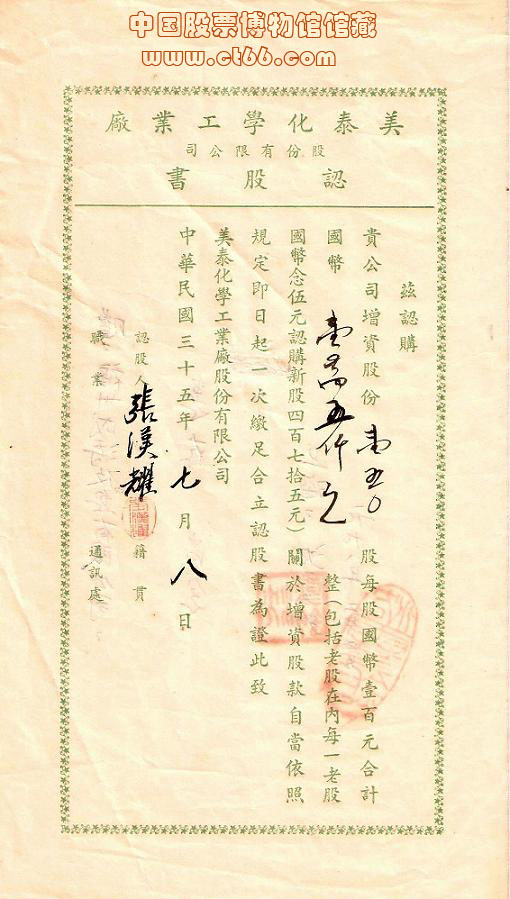 中国股票博物馆馆藏
www.ct66.com
美泰化學工業廠
股份有限公司
認股書
茲認購
貴公司增資股份壹五〇股每股國幣壹百元合計
國幣壹萬五仟元整（包括老股在內每一老股
國幣念伍元認購新股四百七拾五元）關於增資股款自當依照
規定即日起一次繳足合立認股書為證此致
美泰化學工業廠股份有限公司
中華民國三十五年七月八日
認股人張漢耀籍貫
職業通訊處